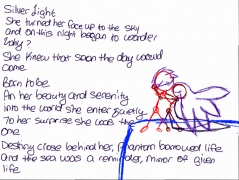 Silver Light
She turned her face up to the sky
and on this night began to wonder
why?
She knew that soon the day would
come
Born to be
An her beauty and serenity
into the world she enter quietly
To her surprise she was the
one
Destiny close behind her, phantom borrowed life
And the sea was a reminder, mirror of given
life